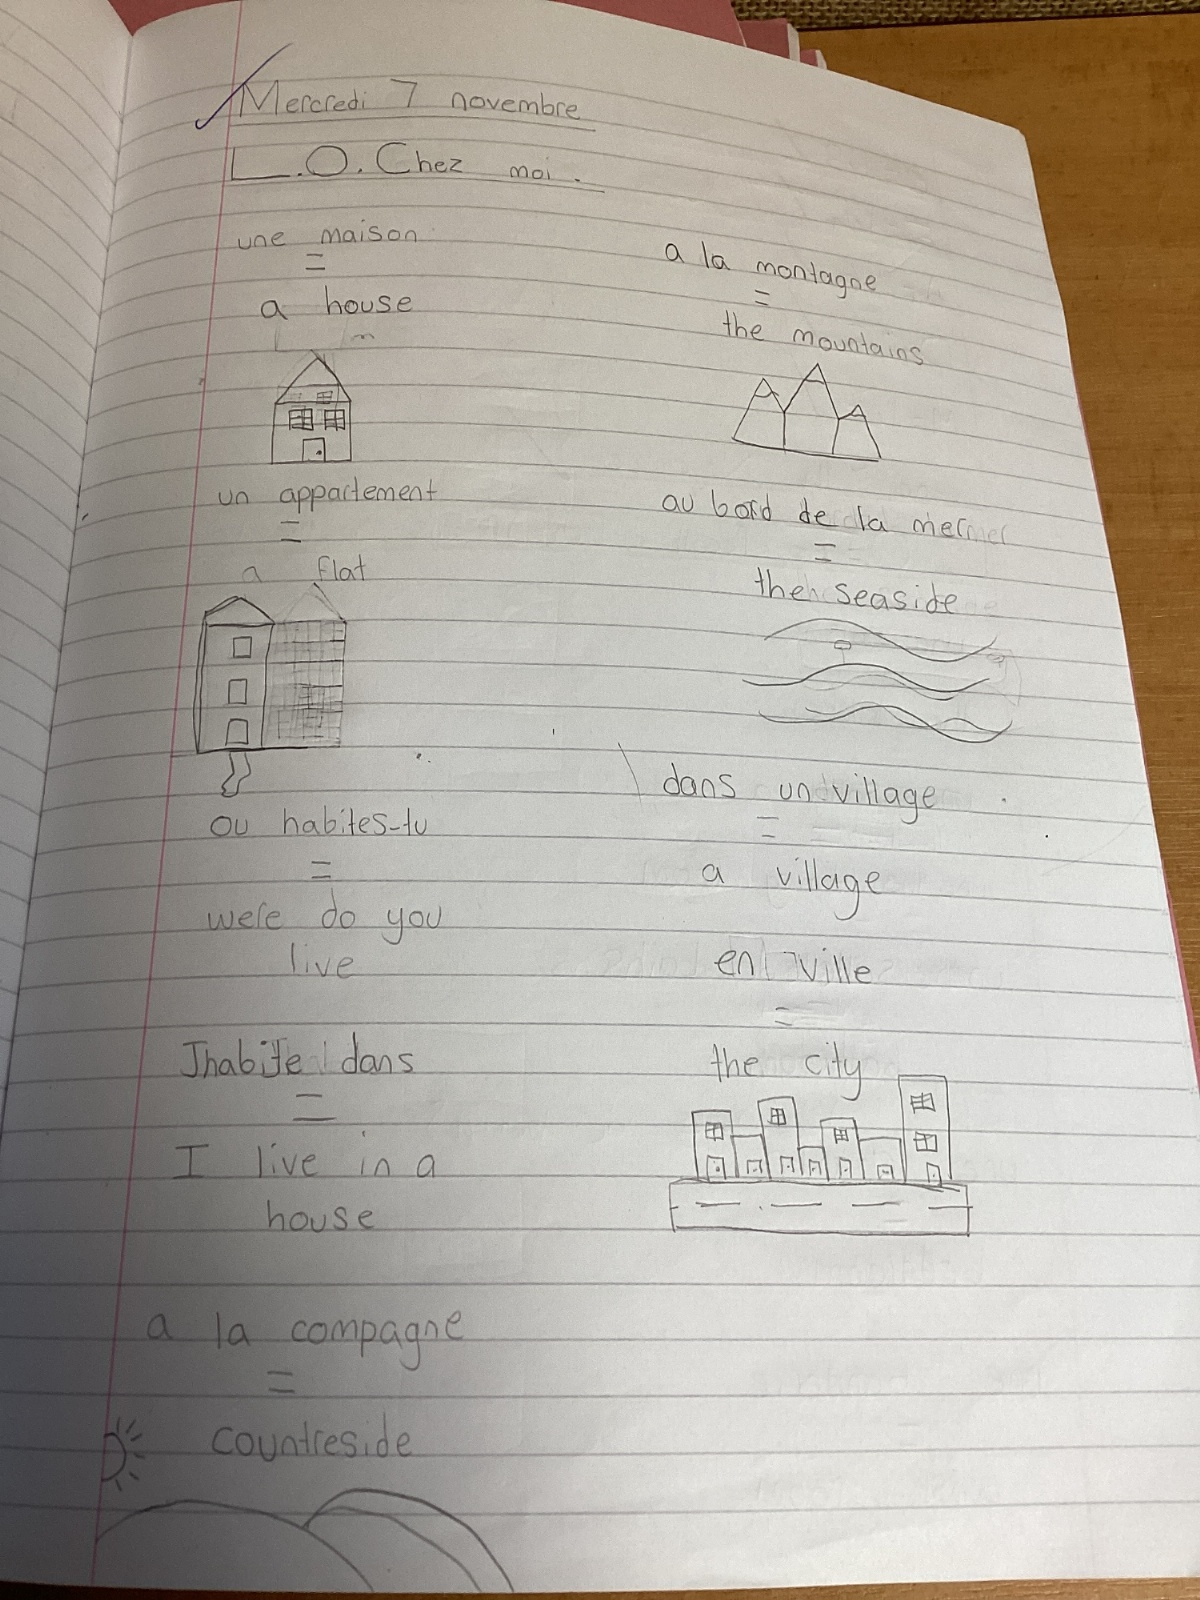 Mercredi 7 novembre
L.O. Chez moi.
une maison
=
a house
un appartement
=
a flat
ou habites-tu
=
were do you
live
Jhabite dans
=
I live in a
house
a la compagne
=
countreside
a la montagne
=
the mountains
au bord de la mer
=
the seaside
dans un village
=
a village
en ville
=
the city